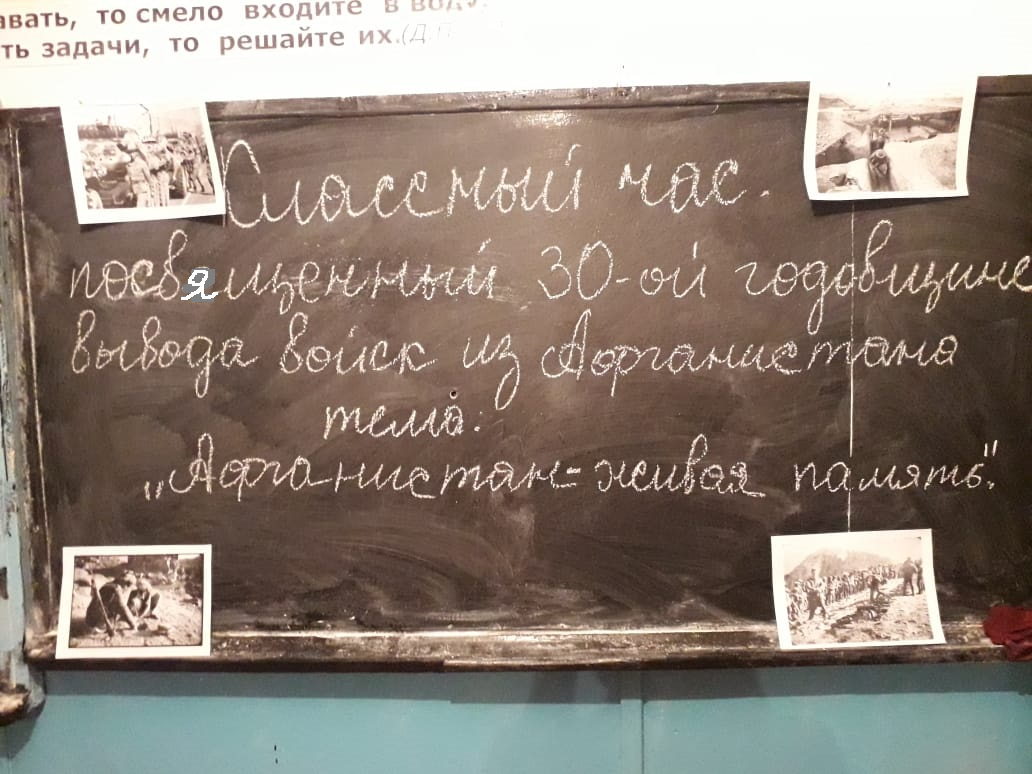 авать, то смело входите в воду,
ть задачи, то решайте их. (Д.П
Классный час.
посвященный 30-ой годовщине
вывода войск из Афганистана
тема:
„Афганистан-живая память."